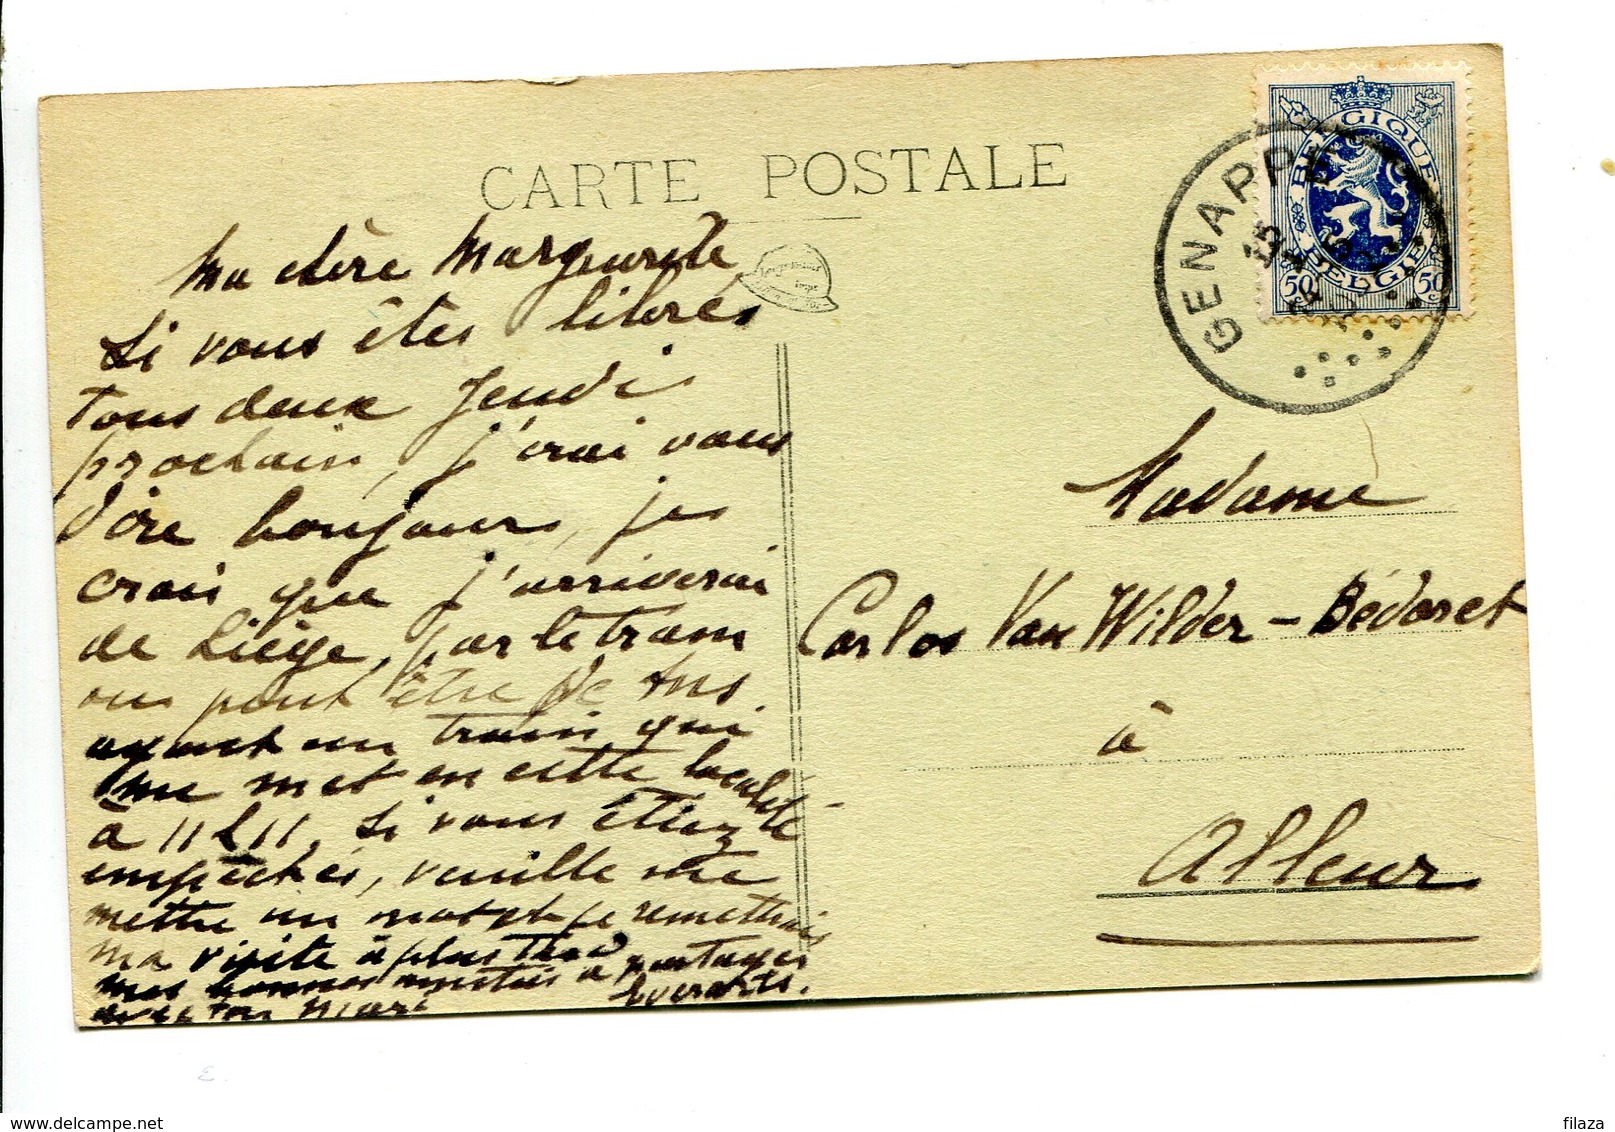 CARTE POSTALE
Ma chère Marguerite,
Si vous êtes libres
tous deux Jeudi
prochain, j'irai vous
dire bonjour, je
crois que j'arriverai
de Liège, par le tram
ou peut être de
ayant un train qui
me met en cette localité
à 11 h 11, si vous étiez
empêchés, veuille me
mettre un mot et je remettrais
ma visite à plus tard
mes bonnes amitiés à partager
avec ton mari Everarts.
BELGIQUE
BELGIE
50 50
GENAPPE
15
Madame
Carlos Van Wilder-Bédoret
à
Alleur
filaza
www.delcampe.net